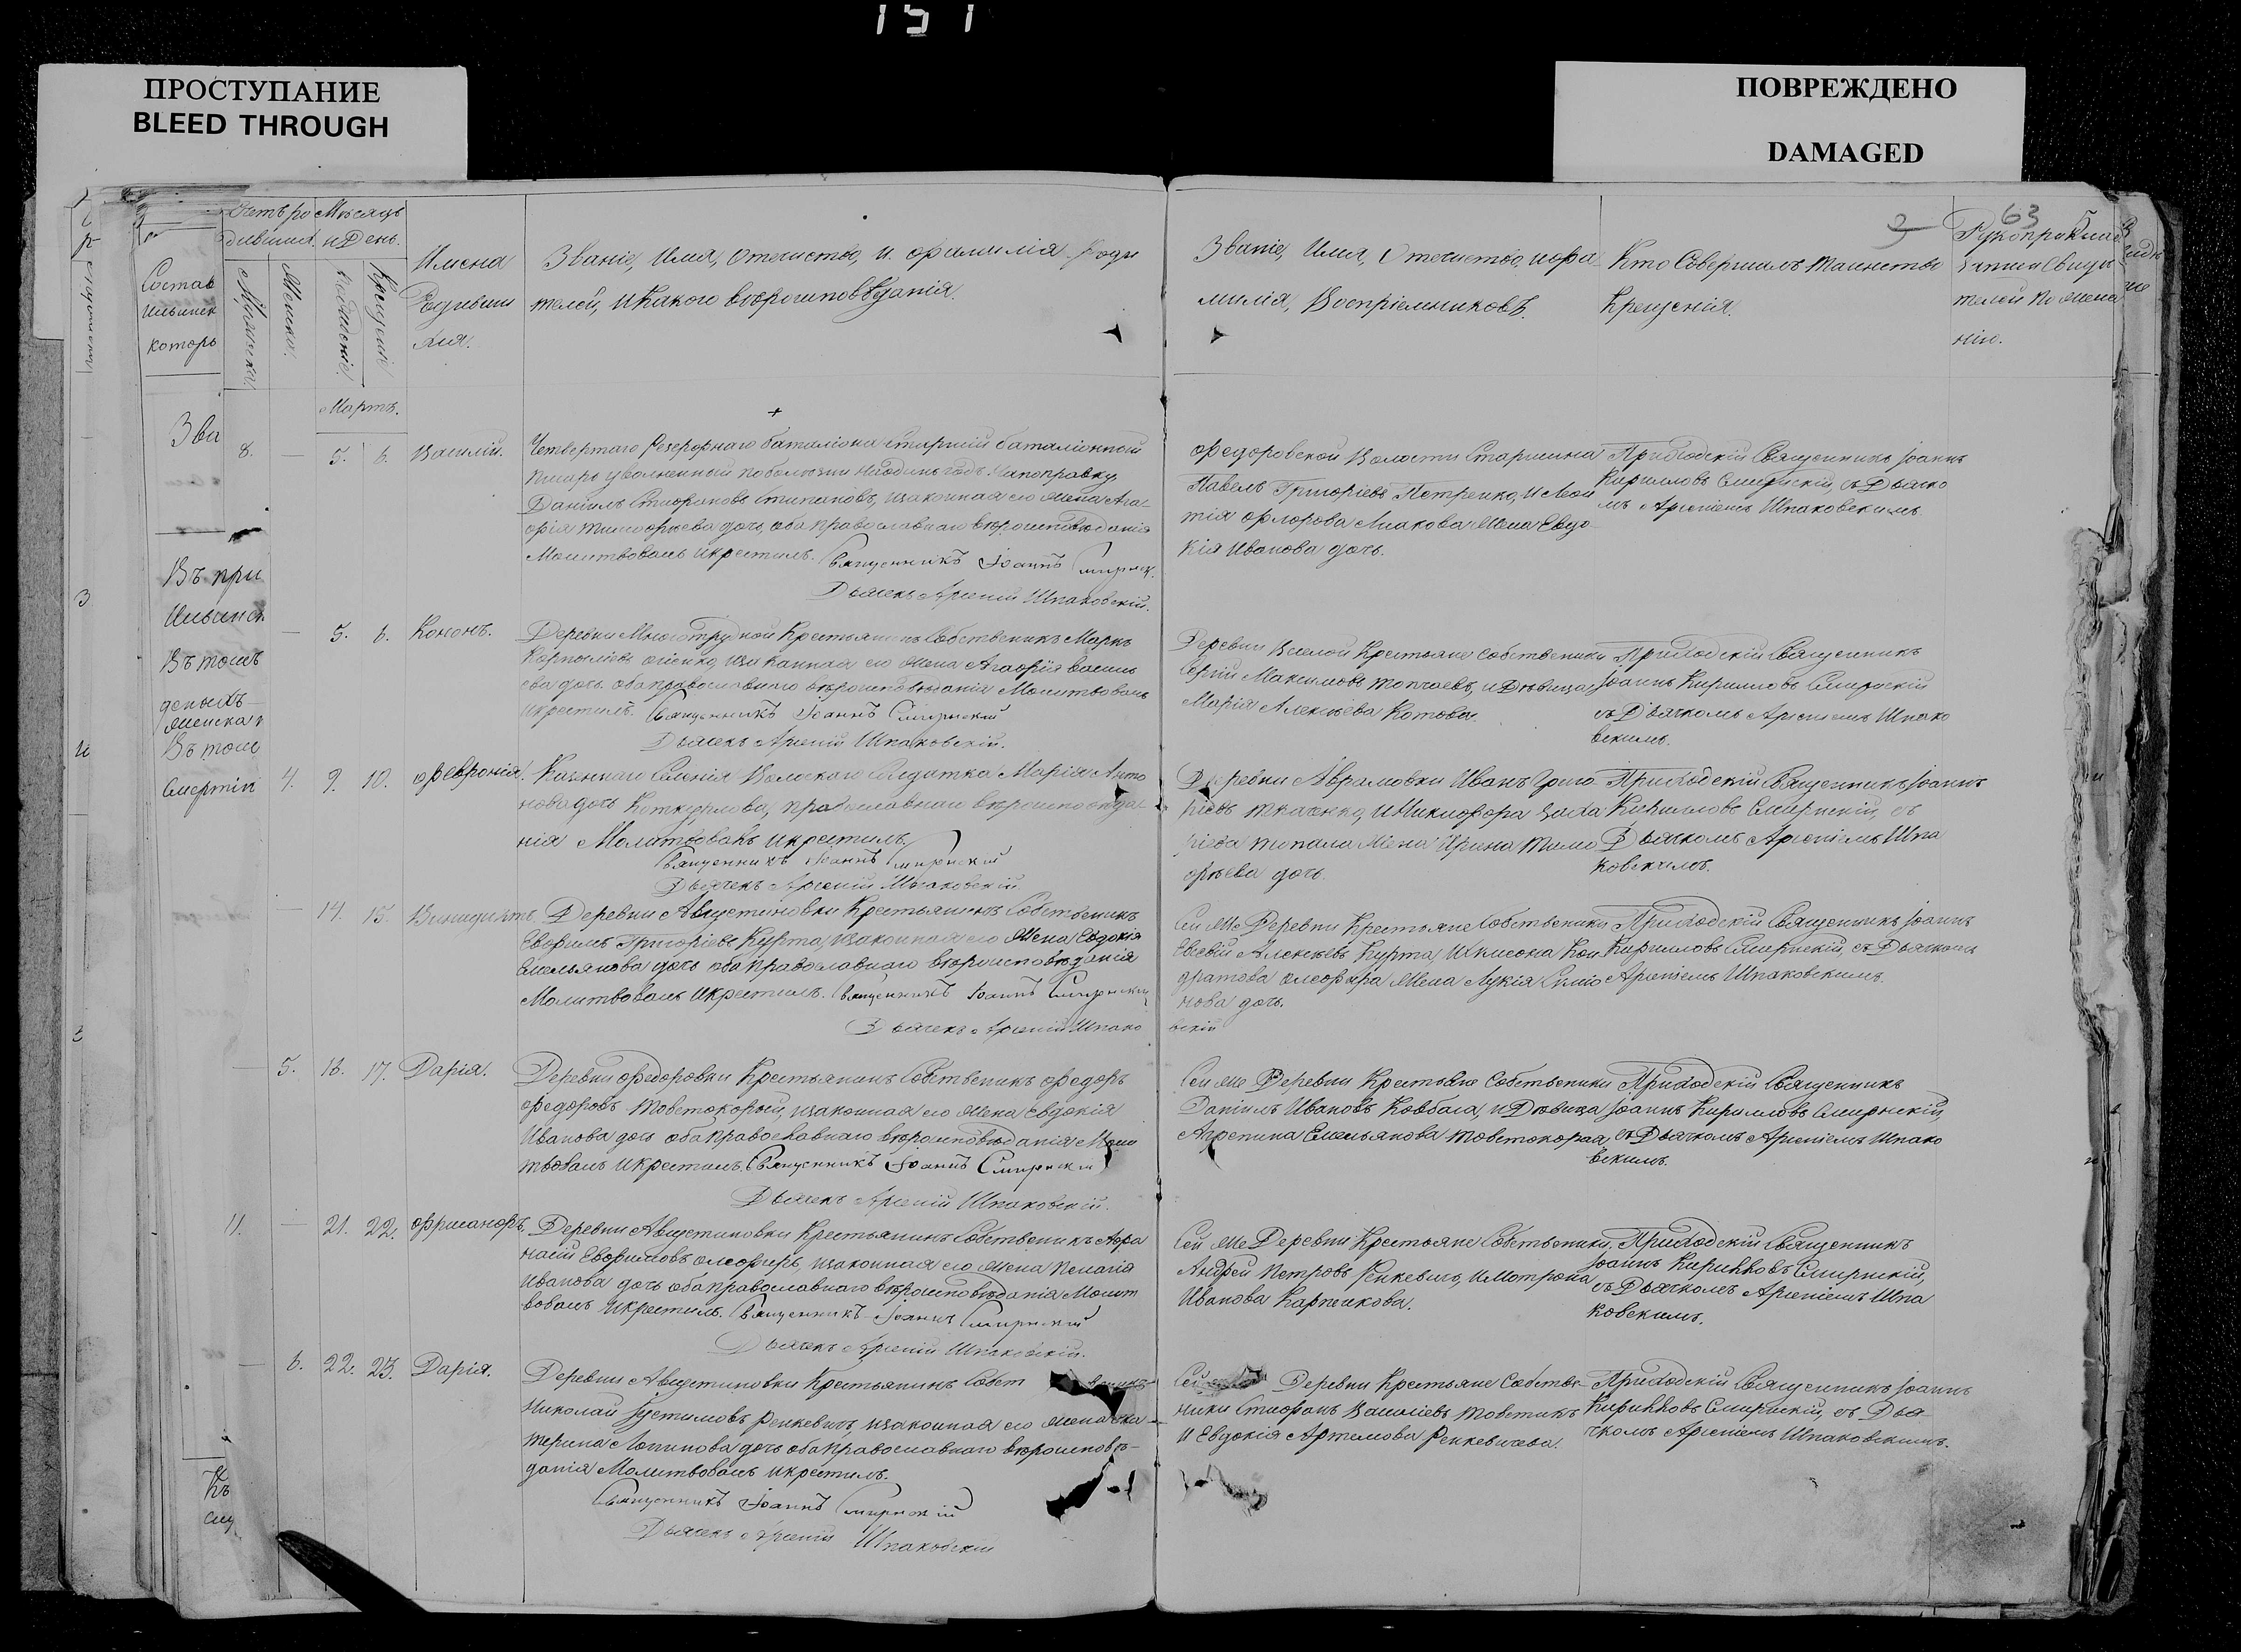 151
ПРОСТУПАНИЕ
BLEED THROUGH
ПОВРЕЖДЕНО
DAMAGED
63
Счетъ ро
дившихся.
Мѣсяцъ
и День.
Мужеска
Женска.
Рожденіе.
Крещеніе
Имена
Родивши
хся.
Званіе, Имя, Отечиство, и фамилія Роди
телей, и Какого вѣроисповѣданія.
Званіе, Имя, Отечиство, и фа
милія, Воспріемниковъ.
Кто Совершалъ таинство
Крещенія.
Рукоприклад
телей по жела
нію.
Состав
которы
Зва
Въ при
Въ томъ
Въ том
Смертію
Мартъ.
8. — 5. 6. Василій.
Четвертаго Резервнаго баталіона Старшій баталіонный
писарь уволенный по болезни на одинъ годъ на поправку
Даніилъ Стефановъ Степановъ, и законная его жена Ага
фія Тимофеева дочь, оба православнаго вѣроисповѣданія
Молитвовалъ и крестилъ. Священникъ Іоаннъ Смирнск.
Дьячекъ Арсеній Шпаковскій.
Федоровской Волости Старшина
Павелъ Григоріевъ Петренко, и
кія Иванова дочь.
Приходскій Священникъ Іоаннъ
Кирилловъ Смирнскій, съ Дьячко
мъ Арсеніемъ Шпаковскимъ.
— 5. 6. Кононъ.
Деревни Многотрудной Крестьянинъ Собственикъ Маркъ
и законная его жена Агафія Василь
ева дочь оба православнаго вѣроисповѣданія Молитвовалъ
и крестилъ. Священникъ Іоаннъ Смирнскій
Дьячекъ Арсеній Шпаковскій.
Деревни Веселой Крестьяне Собственики
Сергій Максимовъ Топчаевъ, и Дѣвица
Марія Алексѣева Котова.
Приходскій Священникъ
Іоаннъ Кирилловъ Смирнскій
съ Дьячкомъ Арсеніемъ Шпако
вскимъ.
4. 9. 10. Февронія.
Казеннаго Селенія Солдатка Марія Анто
нова дочь православнаго вѣроисповѣда
нія Молитвовалъ и крестилъ.
Священникъ Іоаннъ Смирнскій
Дьячекъ Арсеній Шпаковскій
Деревни Аврамовки Иванъ Григо
ріевъ Ткаченко, и Никифора Заха
ріева Топала жена Ирина Тимо
фѣева дочь.
Приходскій Священникъ Іоаннъ
Кирилловъ Смирнскій, съ
Дьячкомъ Арсеніемъ Шпа
ковскимъ.
— 14. 15. Винидиктъ
Деревни Августиновки Крестьянинъ Собственикъ
Евфимъ Григоріевъ Курта, и законная его жена Евдокія
Емельянова дочь оба православнаго вѣроисповѣданія
Молитвовалъ и крестилъ. Священникъ Іоаннъ Смирнскій
Дьячекъ Арсеній Шпако
вскій
Сей же Деревни Крестьяне Собственики
Евсевій Алексѣевъ Курта, и Кон
дратова Олефира жена Лукія
нова дочь.
Приходскій Священникъ Іоаннъ
Кирилловъ Смирнскій, съ Дьячкомъ
Арсеніемъ Шпаковскимъ.
— 5. 16. 17. Дарія.
Деревни Федоровки Крестьянинъ Собственикъ Федоръ
Федоровъ Товстокорый, и законная его жена Евдокія
Иванова дочь оба православнаго вѣроисповѣданія Моли
твовалъ и крестилъ. Священникъ Іоаннъ Смирнскій
Дьячекъ Арсеній Шпаковскій.
Сей же Деревни Крестьяне Собственики
Даніилъ Ивановъ Ковбаса, и Дѣвица
Агрепина Емельянова Товстокорая,
Приходскій Священникъ
Іоаннъ Кирилловъ Смирнскій,
съ Дьячкомъ Арсеніемъ Шпако
вскимъ.
11. — 21. 22.
Деревни Августиновки Крестьянинъ Собственикъ Афа
насій Евфимовъ Олефиръ, и законная его жена Пелагія
Иванова дочь оба православнаго вѣроисповѣданія Молит
вовалъ и крестилъ. Священникъ Іоаннъ Смирнскій
Дьячекъ Арсеній Шпаковскій.
Сей же Деревни Крестьяне Собственики,
Андрей Петровъ Ренкевичъ, и Мотрона
Иванова Карпенкова.
Приходскій Священникъ
Іоаннъ Кирилловъ Смирнскій,
съ Дьячкомъ Арсеніемъ Шпа
ковскимъ.
— 6. 22. 23. Дарія.
Деревни Августиновки Крестьянинъ Собст
Николай Устимовъ Ренкевичъ, и законная его жена Ека
терина Логинова дочь оба православнаго вѣроисповѣ-
данія Молитвовалъ и крестилъ.
Священникъ Іоаннъ Смирнскій
Дьячекъ Арсеній Шпаковскій
Сей Деревни Крестьяне Собстве
ники Стефанъ Василіевъ Товстикъ
и Евдокія Артемова Ренкевичева.
Приходскій Священникъ Іоаннъ
Кирилловъ Смирнскій, съ Дья-
чкомъ Арсеніемъ Шпаковскимъ.